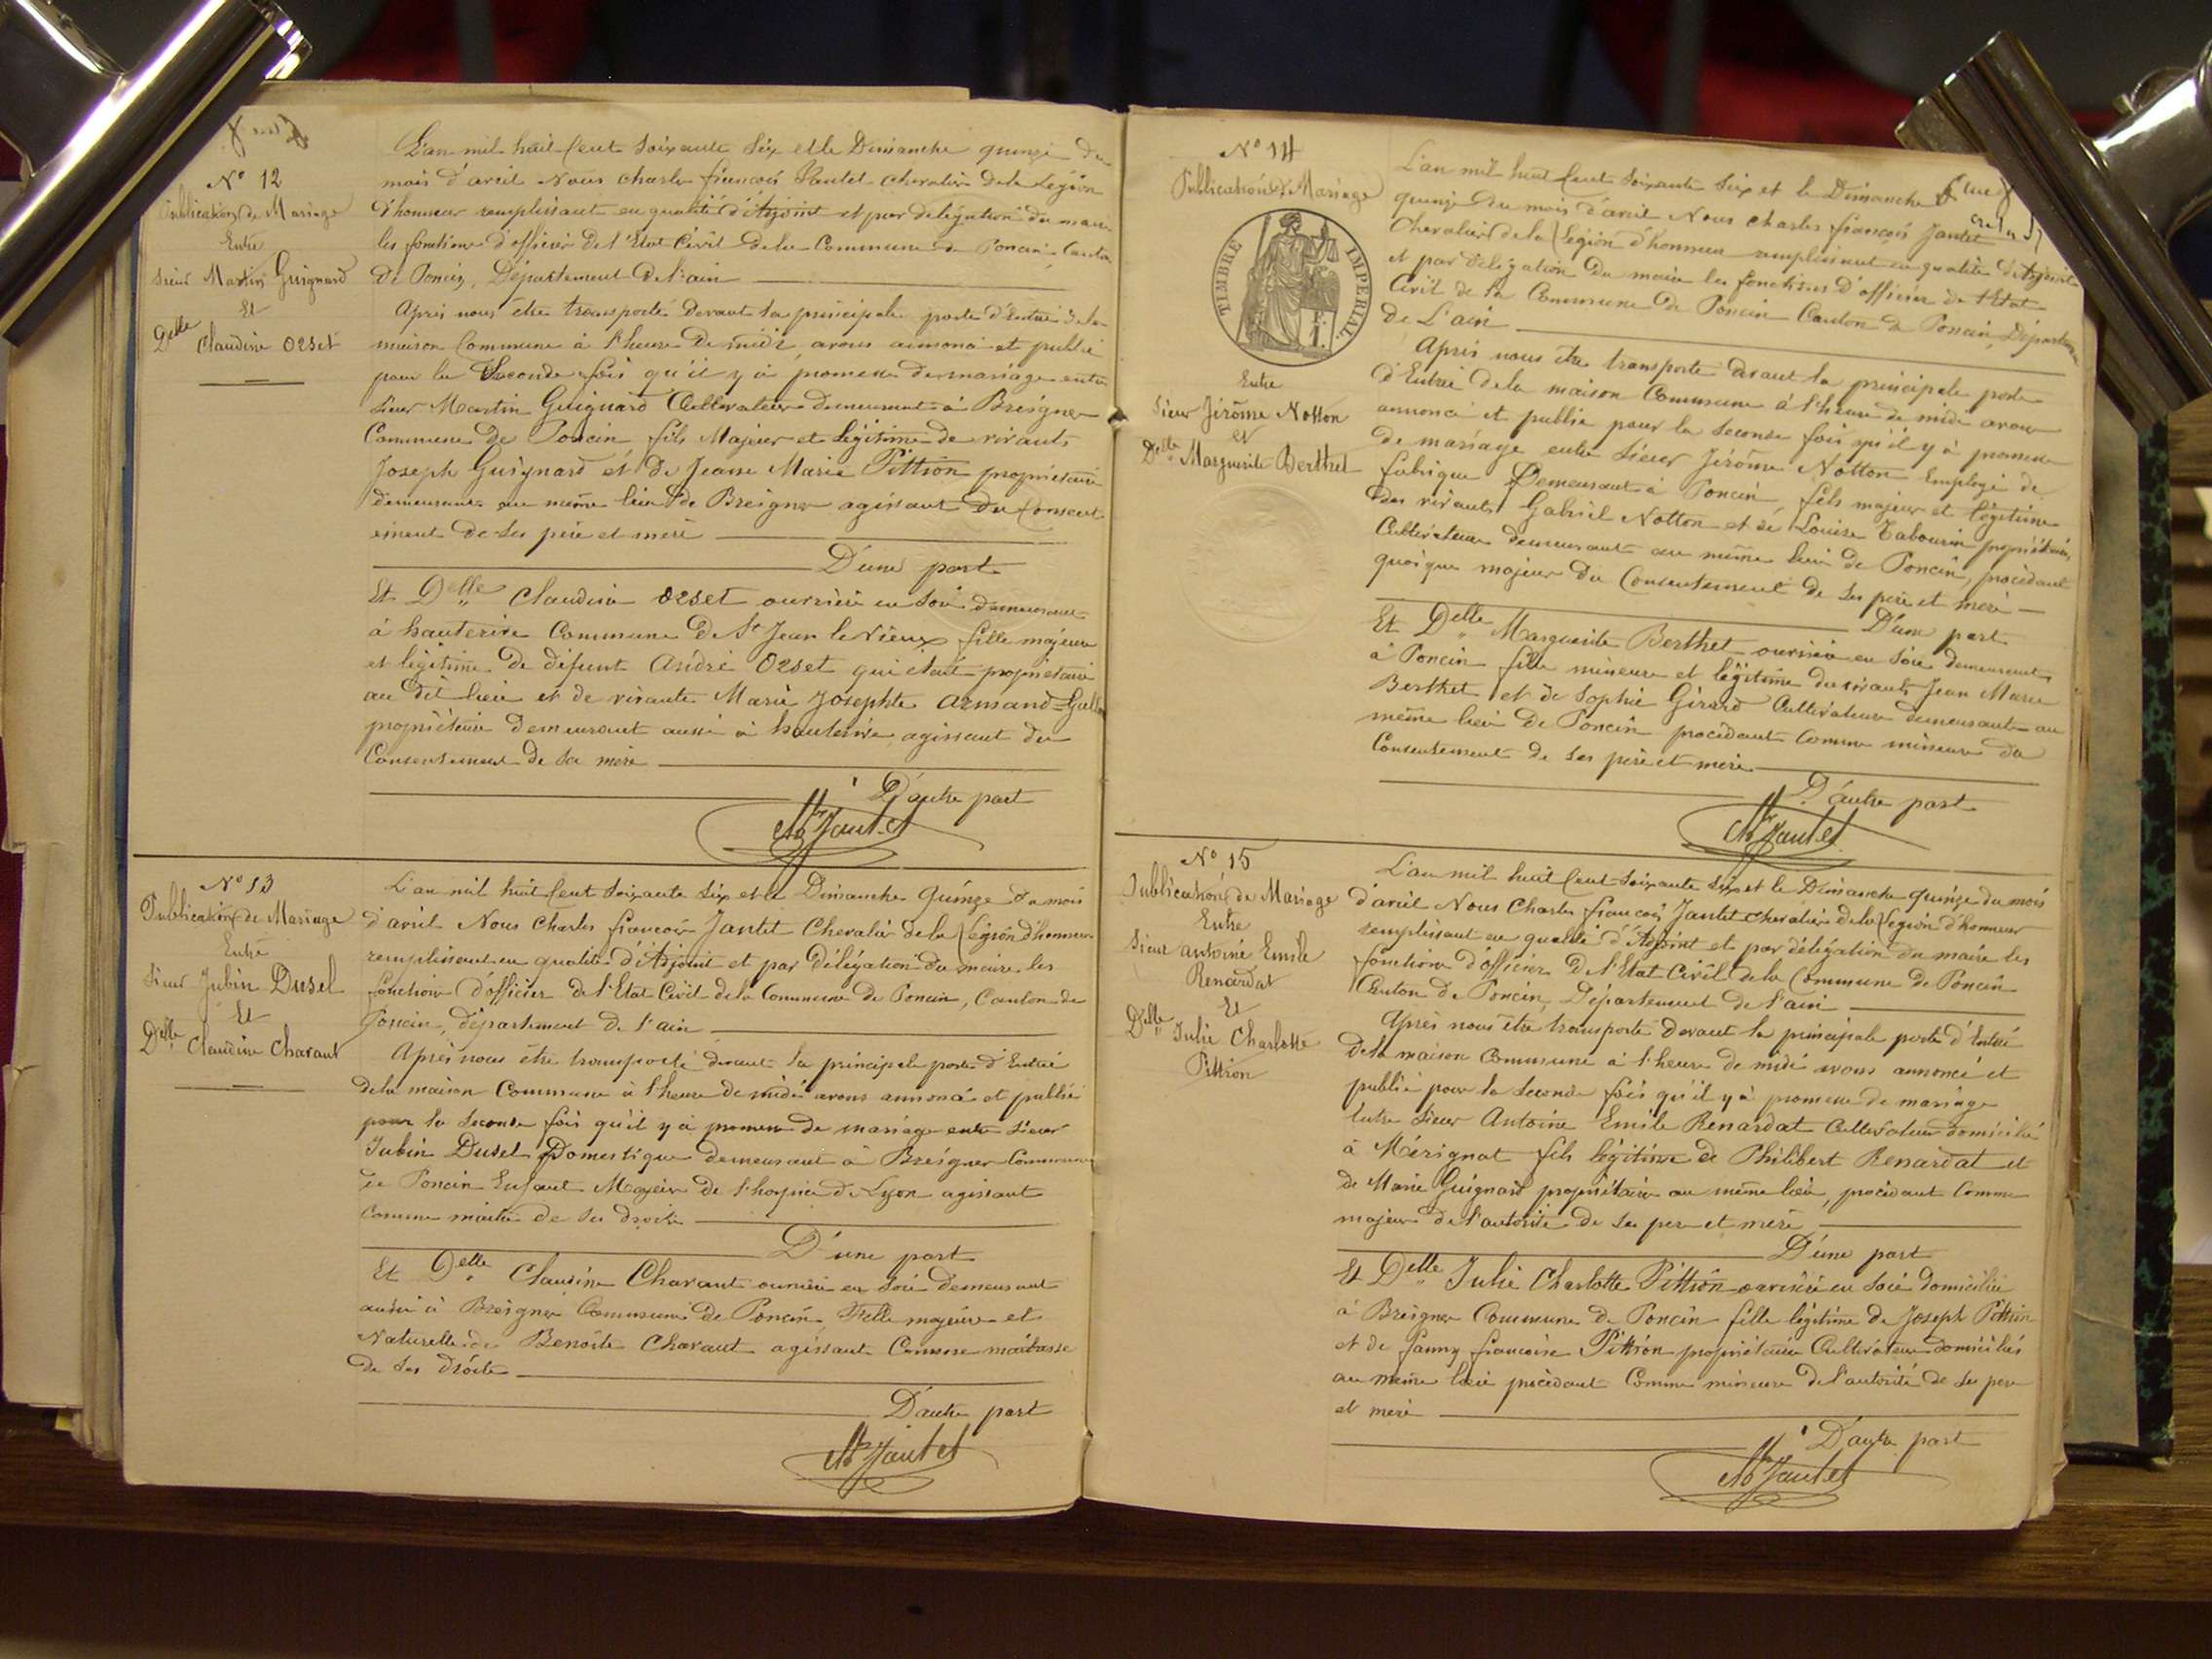 N° 12
Publication de Mariage
Entre
Sieur Martin Guignard
Et
Delle Claudine Orset
L'an mil huit Cent soixante six et le Dimanche quinze du
mois d'avril Nous charles françois Jantet chevalier de la Légion
d'honneur remplissant en qualité d'Adjoint et par délégation du maire
les fonctions d'officier de l'Etat Civil de la Commune de Poncin Canton
de Poncin, Département de l'ain
Après nous être transporté devant la principale porte d'Entrée de la
maison Commune à l'heure de midi, avons annoncé et publié
pour la Seconde fois qu'il y à promesse de mariage entre
Sieur Martin Guignard Cultivateur demeurant à Breignes
Commune de Poncin fils Majeur et légitime de vivants
Joseph Guignard et de Jeanne Marie Pittion propriétaires
demeurants au même lieu de Breignes agissant du Consent
ement de ses père et mère
D'une part
Et Delle Claudine Orset ouvrière en soie demeurant
à hauterive Commune de St Jean le Vieux fille majeure
et légitime de défunt André Orset qui était propriétaire
au dit lieu et de vivante Marie Josephte Armand-
propriétaire demeurant aussi à hauterive, agissant du
Consentement de sa mère
D'autre part
Ch Jantet
N° 13
Publication de Mariage
Entre
Sieur Jubin Dusel
Et
Delle Claudine Charant
L'an mil huit Cent soixante six et le Dimanche Quinze du mois
d'avril Nous Charles françois Jantet Chevalier de la Légion d'honneur
remplissant en qualité d'Adjoint et par Délégation du maire les
fonctions d'officier de l'Etat Civil de la Commune de Poncin, Canton de
Poncin, département de l'ain
Après nous être transporté devant la principale porte d'Entrée
de la maison Commune à l'heure de midi avons annoncé et publié
pour la seconde fois qu'il y à promesse de mariage entre Sieur
Jubin Dusel Domestique demeurant à Breignes Commune
de Poncin Enfant Majeur de l'hospice de Lyon agissant
comme maître de ses droits
D'une part
Et Delle Claudine Charant ouvrière en soie demeurant
aussi à Breignes Commune de Poncin, Fille majeure et
Naturelle de Benoîte Charant agissant Comme maîtresse
de ses droits
D'autre part
Ch Jantet
N° 14
Publication de Mariage
TIMBRE IMPERIAL
Entre
Sieur Jérôme Notton
et
Delle Marguerite Berthet
L'an mil huit Cent soixante six et le Dimanche
quinze du mois d'avril Nous charles françois Jantet
Chevalier de la Légion d'honneur remplissant en qualité d'Adjoint
et par délégation du maire les fonctions d'officier de l'Etat
Civil de la Commune de Poncin Canton de Poncin, Département
de L'ain
Après nous être transporté devant la principale porte
d'Entrée de la maison Commune à l'heure de midi avons
annoncé et publié pour la seconde fois qu'il y à promesse
de mariage entre Sieur Jérôme Notton Employé de
fabrique Demeurant à Poncin, fils majeur et légitime
des vivants Gabriel Notton et de Louise Tabourin propriétaires,
Cultivateurs demeurant au même lieu de Poncin, procédant
quoique majeur du Consentement de ses père et mère
D'une part
Et Delle Marguerite Berthet ouvrière en soie demeurant
à Poncin fille mineure et légitime de vivants Jean Marie
Berthet et de Sophie Girard Cultivateurs demeurants au
même lieu de Poncin procédant Comme mineure du
Consentement de ses père et mère
D'autre part
Ch Jantet
N° 15
Publication de Mariage
Entre
Sieur antoine Emile
Renardat
Et
Delle Julie Charlotte
Pittion
L'an mil huit Cent soixante six et le Dimanche quinze du mois
d'avril Nous Charles françois Jantet chevalier de la Légion d'honneur
remplissant en qualité d'Adjoint et par délégation du maire les
fonctions d'officier de l'Etat Civil de la Commune de Poncin
Canton de Poncin, Département de l'ain
Après nous être transporté devant la principale porte d'Entrée
de la maison Commune à l'heure de midi avons annoncé et
publié pour la seconde fois qu'il y à promesse de mariage
Entre Sieur Antoine Emile Renardat Cultivateur domicilié
à Mérignat fils légitime de Philibert Renardat et
de Marie Guignard propriétaires au même lieu, procédant Comme
majeur de l'autorité de ses père et mère
D'une part
Et Delle Julie Charlotte Pittion ouvrière en soie domiciliée
à Breignes Commune de Poncin fille légitime de Joseph Pittion
et de fanny françoise Pittion propriétaires Cultivateurs domiciliés
au même lieu procédant Comme mineure de l'autorité de ses père
et mère
D'autre part
Ch Jantet